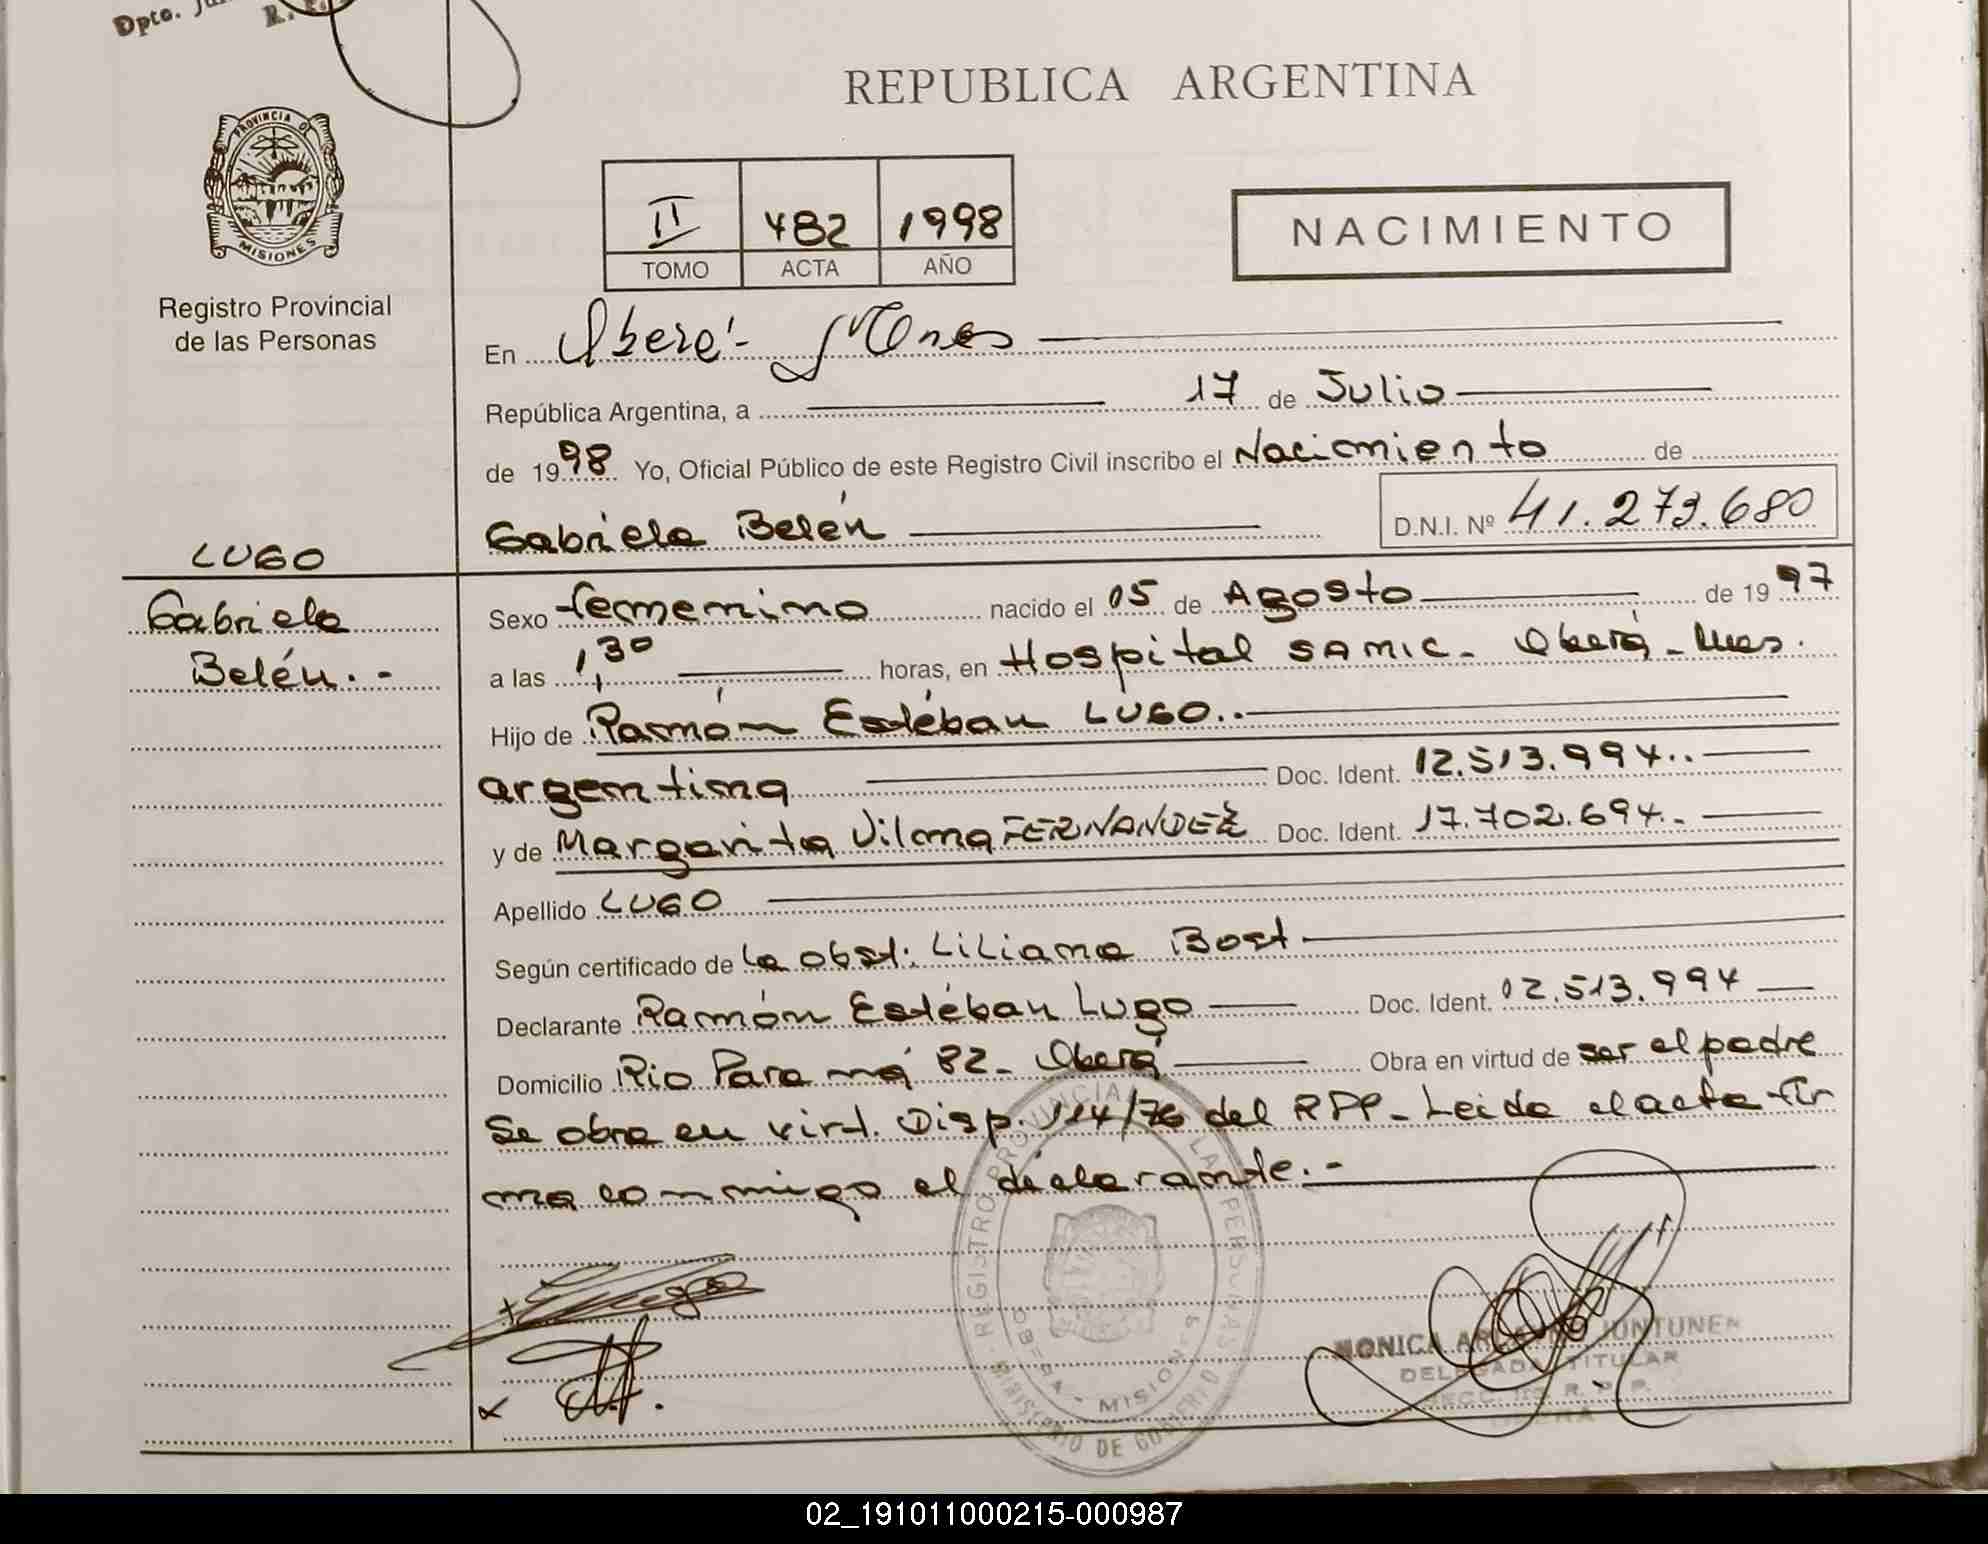 Dpto.
REPUBLICA ARGENTINA
PROVINCIA DE
MISIONES
II 482 1998
TOMO ACTA AÑO
NACIMIENTO
Registro Provincial
de las Personas
En Oberá- Mnes
República Argentina, a 17 de Julio
de 1998 Yo, Oficial Público de este Registro Civil inscribo el Nacimiento de
Gabriela Belén D.N.I. Nº 41.273.680
LUGO
Gabriela
Belén.-
Sexo femenino nacido el 05 de Agosto de 1997
a las 1,30 horas, en Hospital SAMIC- Oberá- Mnes.
Hijo de Ramón Estéban LUGO..
argentina Doc. Ident. 12.513.994..
y de Margarita Vilma FERNANDEZ Doc. Ident. 17.702.694.-
Apellido LUGO
Según certificado de la obst. Liliana Bost
Declarante Ramón Estéban Lugo Doc. Ident. 12.513.994
Domicilio Rio Paraná 82- Oberá Obra en virtud de ser el padre
Se obra en virt. Disp. 114/76 del RPP- Leida el acta fir
ma conmigo el declarante.-
REGISTRO PROVINCIAL LAS PERSONAS
OBERA - MISIONES
MINISTERIO DE GOBIERNO
MONICA JUNTUNEN
DELEGADA TITULAR
R. P. P.
OBERA
02_191011000215-000987